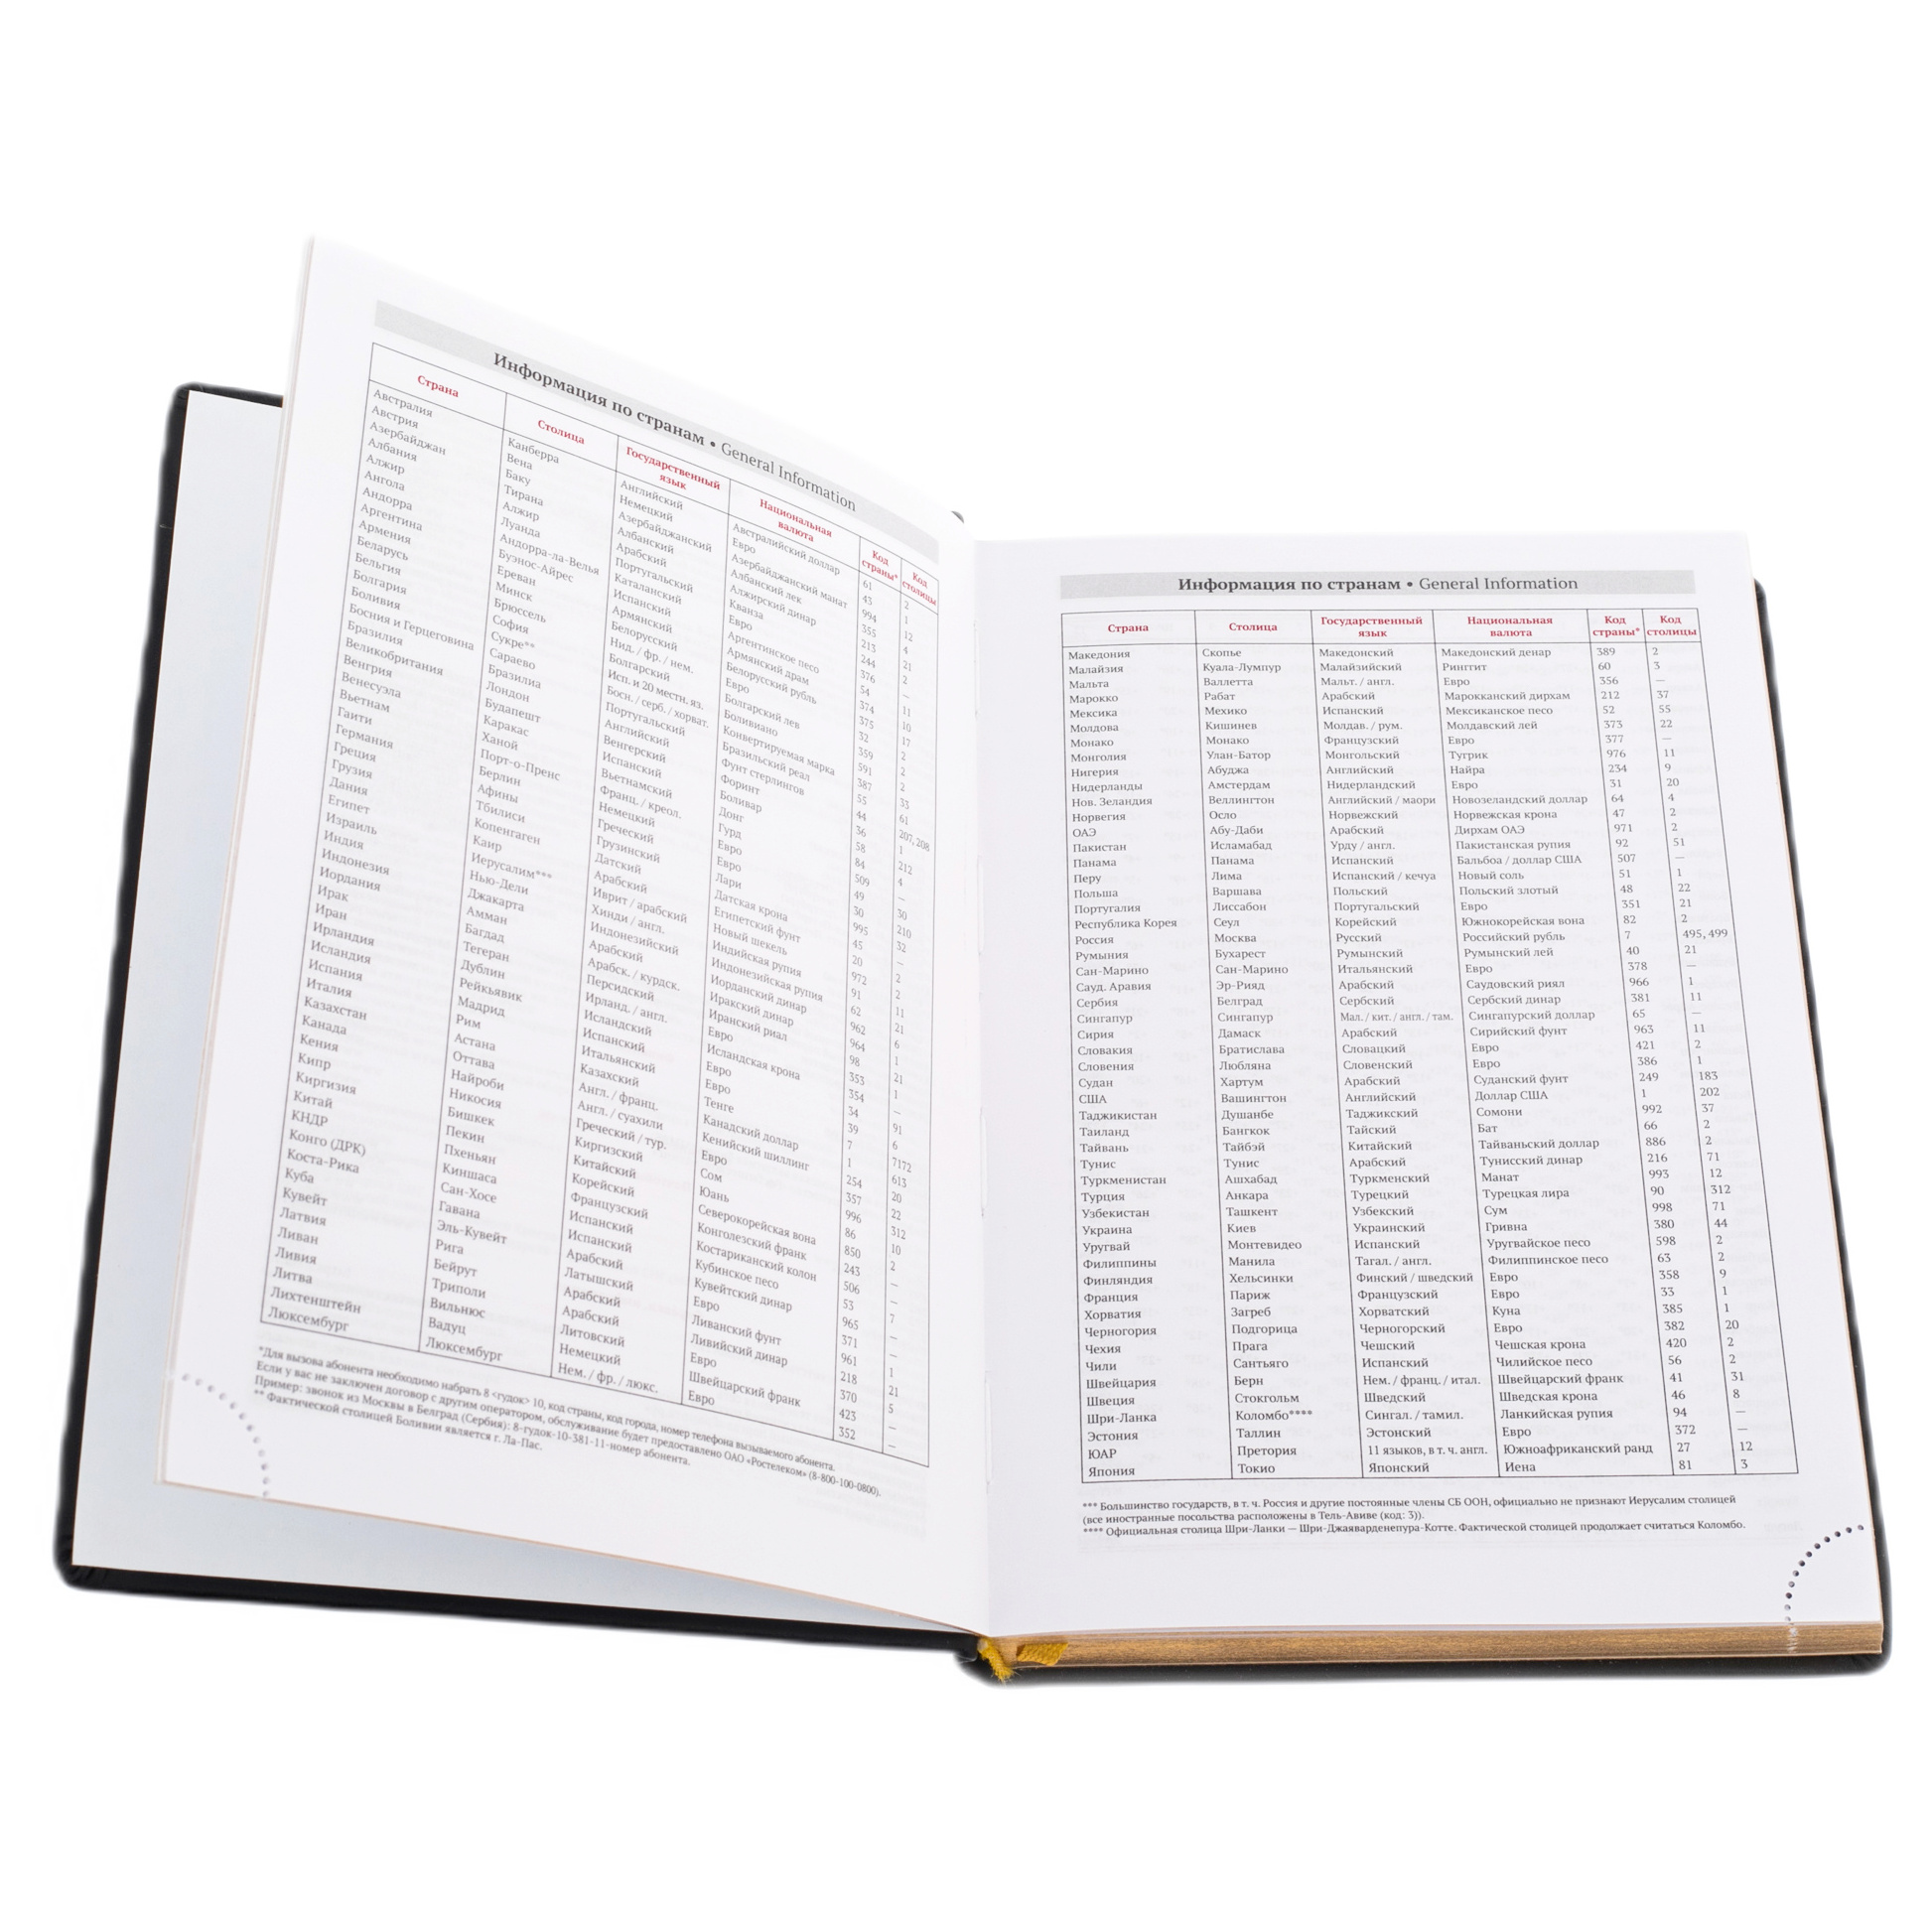 Информация по странам • General Information
Страна Столица Государственный язык Национальная валюта Код страны* Код столицы
Австралия Канберра Английский Австралийский доллар 61 2
Австрия Вена Немецкий Евро 43 1
Азербайджан Баку Азербайджанский Азербайджанский манат 994 12
Албания Тирана Албанский Албанский лек 355 4
Алжир Алжир Арабский Алжирский динар 213 21
Ангола Луанда Португальский Кванза 244 2
Андорра Андорра-ла-Велья Каталанский Евро 376 —
Аргентина Буэнос-Айрес Испанский Аргентинское песо 54 11
Армения Ереван Армянский Армянский драм 374 10
Беларусь Минск Белорусский Белорусский рубль 375 17
Бельгия Брюссель Нид. / фр. / нем. Евро 32 2
Болгария София Болгарский Болгарский лев 359 2
Боливия Сукре** Исп. и 20 местн. яз. Боливиано 591 2
Босния и Герцеговина Сараево Босн. / серб. / хорват. Конвертируемая марка 387 33
Бразилия Бразилиа Португальский Бразильский реал 55 61
Великобритания Лондон Английский Фунт стерлингов 44 207, 208
Венгрия Будапешт Венгерский Форинт 36 1
Венесуэла Каракас Испанский Боливар 58 212
Вьетнам Ханой Вьетнамский Донг 84 4
Гаити Порт-о-Пренс Франц. / креол. Гурд 509 —
Германия Берлин Немецкий Евро 49 30
Греция Афины Греческий Евро 30 210
Грузия Тбилиси Грузинский Лари 995 32
Дания Копенгаген Датский Датская крона 45 —
Египет Каир Арабский Египетский фунт 20 2
Израиль Иерусалим*** Иврит / арабский Новый шекель 972 2
Индия Нью-Дели Хинди / англ. Индийская рупия 91 11
Индонезия Джакарта Индонезийский Индонезийская рупия 62 21
Иордания Амман Арабский Иорданский динар 962 6
Ирак Багдад Арабск. / курдск. Иракский динар 964 1
Иран Тегеран Персидский Иранский риал 98 21
Ирландия Дублин Ирланд. / англ. Евро 353 1
Исландия Рейкьявик Исландский Исландская крона 354 —
Испания Мадрид Испанский Евро 34 91
Италия Рим Итальянский Евро 39 6
Казахстан Астана Казахский Тенге 7 7172
Канада Оттава Англ. / франц. Канадский доллар 1 613
Кения Найроби Англ. / суахили Кенийский шиллинг 254 20
Кипр Никосия Греческий / тур. Евро 357 22
Киргизия Бишкек Киргизский Сом 996 312
Китай Пекин Китайский Юань 86 10
КНДР Пхеньян Корейский Северокорейская вона 850 2
Конго (ДРК) Киншаса Французский Конголезский франк 243 —
Коста-Рика Сан-Хосе Испанский Костариканский колон 506 —
Куба Гавана Испанский Кубинское песо 53 7
Кувейт Эль-Кувейт Арабский Кувейтский динар 965 —
Латвия Рига Латышский Евро 371 —
Ливан Бейрут Арабский Ливанский фунт 961 1
Ливия Триполи Арабский Ливийский динар 218 21
Литва Вильнюс Литовский Евро 370 5
Лихтенштейн Вадуц Немецкий Швейцарский франк 423 —
Люксембург Люксембург Нем. / фр. / люкс. Евро 352 —
*Для вызова абонента необходимо набрать 8 <гудок> 10, код страны, код города, номер телефона вызываемого абонента.
Если у вас не заключен договор с другим оператором, обслуживание будет предоставлено ОАО «Ростелеком» (8-800-100-0800).
Пример: звонок из Москвы в Белград (Сербия): 8-гудок-10-381-11-номер абонента.
** Фактической столицей Боливии является г. Ла-Пас.
Информация по странам • General Information
Страна Столица Государственный язык Национальная валюта Код страны* Код столицы
Македония Скопье Македонский Македонский денар 389 2
Малайзия Куала-Лумпур Малайзийский Рингтит 60 3
Мальта Валлетта Мальт. / англ. Евро 356 —
Марокко Рабат Арабский Марокканский дирхам 212 37
Мексика Мехико Испанский Мексиканское песо 52 55
Молдова Кишинев Молдав. / рум. Молдавский лей 373 22
Монако Монако Французский Евро 377 —
Монголия Улан-Батор Монгольский Тугрик 976 11
Нигерия Абуджа Английский Найра 234 9
Нидерланды Амстердам Нидерландский Евро 31 20
Нов. Зеландия Веллингтон Английский / маори Новозеландский доллар 64 4
Норвегия Осло Норвежский Норвежская крона 47 2
ОАЭ Абу-Даби Арабский Дирхам ОАЭ 971 2
Пакистан Исламабад Урду / англ. Пакистанская рупия 92 51
Панама Панама Испанский Бальбоа / доллар США 507 —
Перу Лима Испанский / кечуа Новый соль 51 1
Польша Варшава Польский Польский злотый 48 22
Португалия Лиссабон Португальский Евро 351 21
Республика Корея Сеул Корейский Южнокорейская вона 82 2
Россия Москва Русский Российский рубль 7 495, 499
Румыния Бухарест Румынский Румынский лей 40 21
Сан-Марино Сан-Марино Итальянский Евро 378 —
Сауд. Аравия Эр-Рияд Арабский Саудовский риял 966 1
Сербия Белград Сербский Сербский динар 381 11
Сингапур Сингапур Мал. / кит. / англ. / там. Сингапурский доллар 65 —
Сирия Дамаск Арабский Сирийский фунт 963 11
Словакия Братислава Словацкий Евро 421 2
Словения Любляна Словенский Евро 386 1
Судан Хартум Арабский Суданский фунт 249 183
США Вашингтон Английский Доллар США 1 202
Таджикистан Душанбе Таджикский Сомони 992 37
Таиланд Бангкок Тайский Бат 66 2
Тайвань Тайбэй Китайский Тайваньский доллар 886 2
Тунис Тунис Арабский Тунисский динар 216 71
Туркменистан Ашхабад Туркменский Манат 993 12
Турция Анкара Турецкий Турецкая лира 90 312
Узбекистан Ташкент Узбекский Сум 998 71
Украина Киев Украинский Гривна 380 44
Уругвай Монтевидео Испанский Уругвайское песо 598 2
Филиппины Манила Тагал. / англ. Филиппинское песо 63 2
Финляндия Хельсинки Финский / шведский Евро 358 9
Франция Париж Французский Евро 33 1
Хорватия Загреб Хорватский Куна 385 1
Черногория Подгорица Черногорский Евро 382 20
Чехия Прага Чешский Чешская крона 420 2
Чили Сантьяго Испанский Чилийское песо 56 2
Швейцария Берн Нем. / франц. / итал. Швейцарский франк 41 31
Швеция Стокгольм Шведский Шведская крона 46 8
Шри-Ланка Коломбо**** Сингал. / тамил. Ланкийская рупия 94 —
Эстония Таллин Эстонский Евро 372 —
ЮАР Претория 11 языков, в т. ч. англ. Южноафриканский ранд 27 12
Япония Токио Японский Иена 81 3
*** Большинство государств, в т. ч. Россия и другие постоянные члены СБ ООН, официально не признают Иерусалим столицей
(все иностранные посольства расположены в Тель-Авиве (код: 3)).
**** Официальная столица Шри-Ланки — Шри-Джаяварденепура-Котте. Фактической столицей продолжает считаться Коломбо.